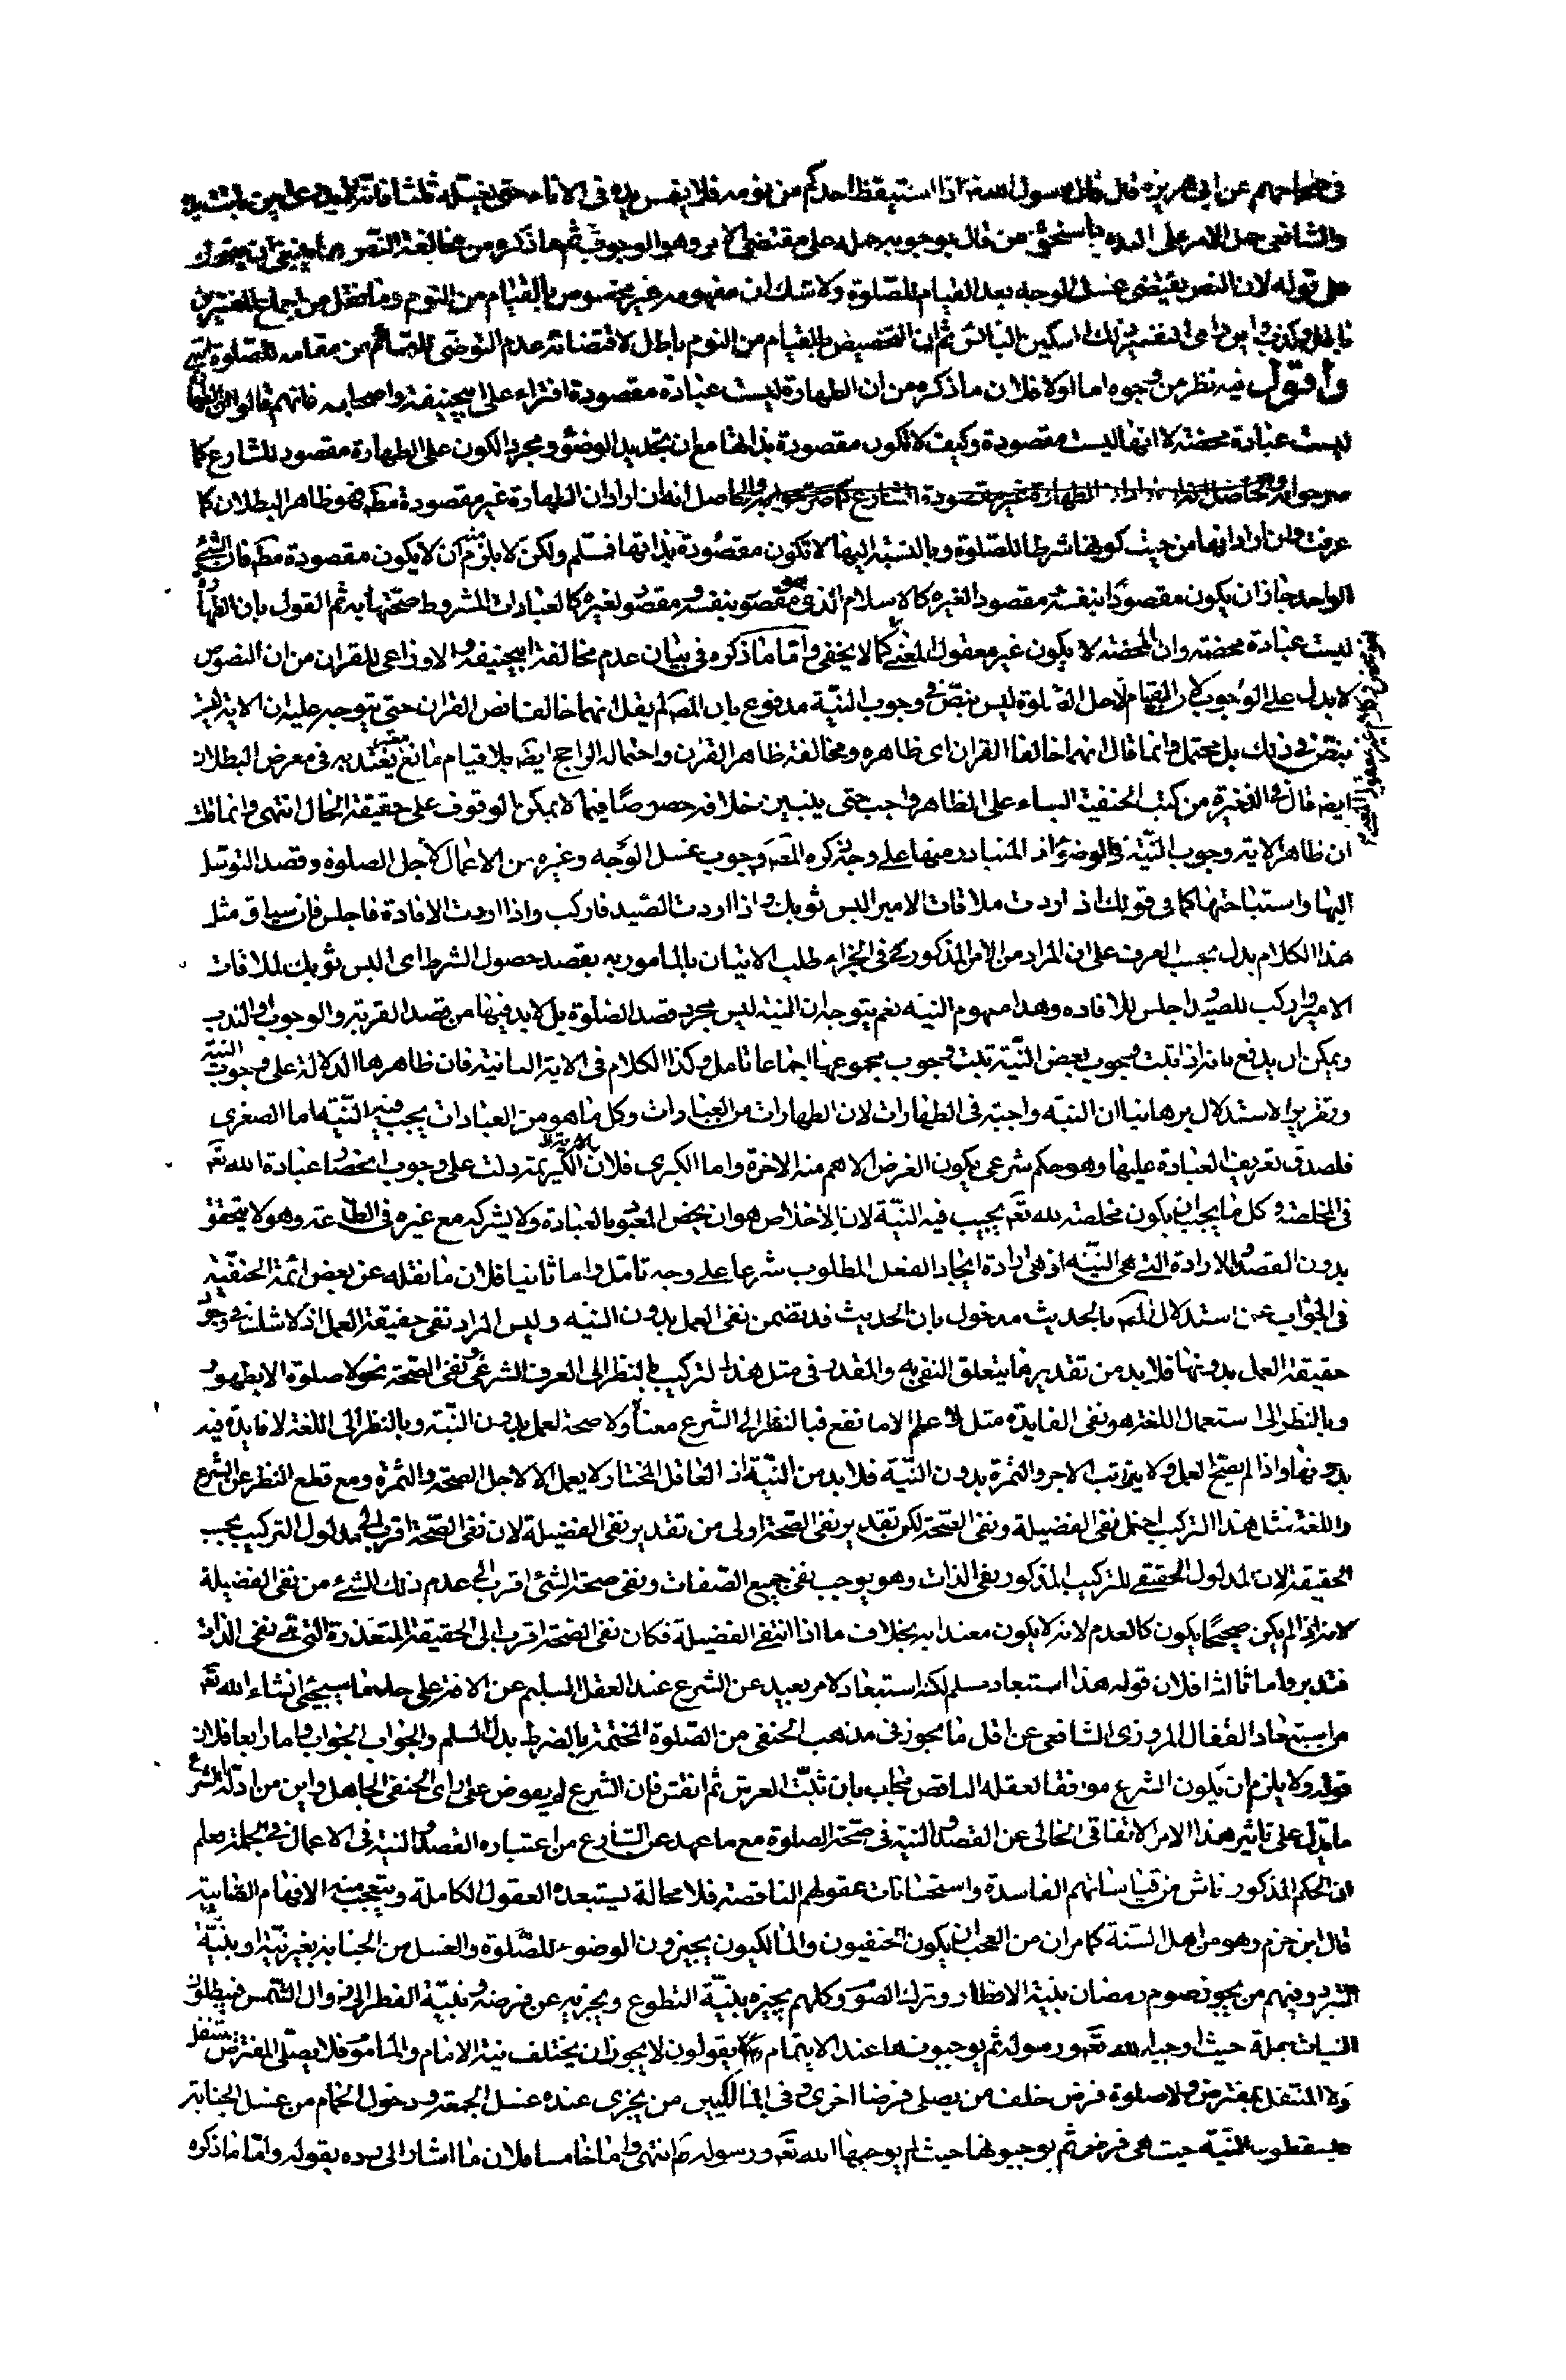 في صحاحهم عن ابي هريرة قال قال رسول الله ص اذا استيقظ احدكم من نومه فلا يغمس يده في الاناء حتى يغسله ثلثا فانه لا يدري اين باتت يده
والشافعي حمل الامر على الندب من قال بوجوبه حمله على مقتضى الامر وهو الوجوب ثم ما ذكره من مخالفة النص
على قوله لان النص يقتضي غسل الوجه بعد القيام للصلوة ولا شك ان مفهومه غير مخصوص بالقيام من النوم وما نقل من اجماع المفسرين
ثم ان التخصيص بالقيام من النوم باطل لاقتضائه عدم التوضي للقائم من مقامه للصلوة انتهى
واقول فيه نظر من وجوه اما اولا فلان ما ذكره من ان الطهارة ليست عبادة مقصودة افتراء على ابيحنيفة واصحابه فانهم قالوا ان الطهارة
ليست عبادة محضة لا انها ليست مقصودة وكيف لا تكون مقصودة بذاتها مع ان تجديد الوضوء ومجرد الكون على الطهارة مقصود للشارع كما
صرحوا به والحاصل انه ان اراد ان الطهارة غير مقصودة مط فهو ظاهر البطلان كما
عرفت وان اراد انها من حيث كونها شرطا للصلوة وبالنسبة اليها لا تكون مقصودة بذاتها فمسلم ولكن لا يلزم منه ان لا يكون مقصودة مط فان الشيء
الواحد جاز ان يكون مقصودا بنفسه ومقصود الغيره كالاسلام الذي هو مقصود بنفسه ومقصود لغيره كالعبادات المشروط صحتها به ثم القول بان الطهارة
ليست عبادة محضة وان المحضة لا يكون غير معقول المعنى كما لا يخفى واما ما ذكره في بيان عدم مخالفة ابيحنيفة والاوزاعي للقران من ان النصوص
لا يدل على الوجوب لان القيام لاجل الصلوة ليس بنص في وجوب النية مدفوع بان المص لم يقل انهما خالفا نص القران حتى يتوجه عليه ان الاية ليس
بنص في ذلك بل محتمل وانما قال انهما خالفا القران اي ظاهره ومخالفة ظاهر القران واحتماله الراجح ايضا بلا قيام مانع معتبر يعتد به في معرض البطلان
ايضا قال في الذخيرة من كتب الحنفية البناء على الظاهر واجب حتى يتبين خلافه خصوصا فيما لا يمكن الوقوف على حقيقة الحال انتهى وانما قلنا
ان ظاهر الاية وجوب النية في الوضوء اذ المتبادر منها على وجه ذكره المص وجوب غسل الوجه وغيره من الاعمال لاجل الصلوة وقصد التوسل
اليها واستباحتها كما في قولك اذا اردت ملاقات الامير البس ثوبك واذا اردت الصيد فاركب واذا اردت الافادة فاجلس فان سياق مثل
هذا الكلام يدل بحسب العرف على ان المراد من الامر المذكور في الجزاء طلب الاتيان بالمامور به بقصد حصول الشرط اي البس ثوبك لملاقات
الامير واركب للصيد واجلس للافاده وهذا مفهوم النيه نعم يتوجه ان النية ليس مجرد قصد الصلوة بل لابد فيها من قصد القربة والوجوب والندب
ويمكن ان يدفع بانه اذا ثبت وجوب بعض النية ثبت وجوب مجموعها اجماعا تامل وكذا الكلام في الاية الثانية فان ظاهرها الدلالة على وجوب النية
وتقرير الاستدلال بهاهنا ان النيه واجبة في الطهارات لان الطهارات من العبادات وكل ما هو من العبادات يجب فيه النية اما الصغرى
فلصدق تعريف العبادة عليها وهو حكم شرعي يكون الغرض الاهم منه الاخرة واما الكبرى فلان الاية الكريمة دلت على وجوب انحصار عبادة الله تع
في المخلصة وكل ما يجب ان يكون مخلصة لله تع يجب فيه النية لان الاخلاص هو ان يخص المعبود بالعبادة ولا يشركه مع غيره في الطاعة وهو لا يتحقق
بدون القصد والارادة التي هي النيه اذ هي ارادة ايجاد الفعل المطلوب شرعا على وجه تامل واما ثانيا فلان ما نقله عن بعض ائمة الحنفية
في الجواب عن استدلال المص بالحديث مدخول بان الحديث قد تضمن نفي العمل بدون النيه وليس المراد نفي حقيقة العمل اذ لا شك في وجود
حقيقة العمل بدونها فلابد من تقدير ما يتعلق النفي به والمقدر في مثل هذا التركيب بالنظر الى العرف الشرعي نفي الصحة نحو لا صلوة الا بطهور
وبالنظر الى استعمال اللغة هو نفي الفايدة مثل لا علم الا ما نفع فبالنظر الى الشرع معناه لا صحة لعمل بدون النية وبالنظر الى اللغة لا فايدة فيه
بدونها واذا لم يصح العمل ولا يترتب الاجر والثمرة بدون النية فلابد من النية اذ العاقل المختار لا يعمل الا لاجل الصحة والثمرة ومع قطع النظر عن الشرع
واللغة مثل هذا التركيب احتمل نفي الفضيلة ونفي الصحة لكن تقدير نفي الصحة اولى من تقدير نفي الفضيلة لان نفي الصحة اقرب الى مدلول التركيب بحسب
الحقيقة لان المدلول الحقيقي للتركيب المذكور نفي الذات وهو يوجب نفي جميع الصفات ونفي صحة الشئ اقرب الى عدم ذلك الشئ من نفي الفضيلة
لانه اذا لم يكن صحيحا يكون كالعدم لانه لا يكون معتدا به بخلاف ما اذا انتفى الفضيلة فكان نفي الصحة اقرب الى الحقيقة المتعذرة التي هي نفي الذات
فتدبر واما ثالثا فلان قوله هذا استبعاد مسلم لكنه استبعاد لامر بعيد عن الشرع عند العقل السليم عن الافة على حد ما سيجئ انشاء الله تع
من استبعاد القفال المروزي الشافعي عن اقل ما يجوز في مذهب الحنفي من الصلوة المختتمة بالضرطة بدل السلم والجواب الجواب واما رابعا فلان
قوله ولا يلزم ان يكون الشرع موافقا لعقله الناقص مجاب بان ثبت العرش ثم انقش فان الشرع لم يفوض على راي الحنفي الجاهل واين من ادلة الشرع
ما يدل على تاثير هذا الامر الاتفاقي الخالي عن القصد والنية في صحة الصلوة مع ما عهد عن الشارع من اعتباره القصد والنية في الاعمال في الجملة فعلم
ان الحكم المذكور ناش من قياساتهم الفاسدة واستحسانات عقولهم الناقصة فلا محالة يستبعده العقول الكاملة ويتعجب منه الافهام الصائبة
قال ابن حزم وهو من اهل السنة كما مر ان من العجب ان يكون الحنفيون والمالكيون يجيزون الوضوء للصلوة والغسل من الجنابة بغير نية او بنية
التبرد وفيهم من يجيز صوم رمضان بنية الافطار وترك الصوم وكلهم يجيزه بنية التطوع ويجزيه عن فرضه وبنية الفطر الى زوال الشمس فيبطلون
النيات جملة حيث اوجبها الله تع ورسوله ثم يوجبونها عند الايتمام يقولون لا يجوز ان يختلف نية الامام والماموم فلا يصلي المفترض خلف المتنفل
ولا المتنفل خلف المفترض ولا صلوة فرض خلف من يصلي فرضا اخرى وفي المالكيين من يجزى عنده غسل الجمعة ودخول الحمام من غسل الجنابة
فيسقطون النية حيث هي فرض ثم يوجبونها حيث لم يوجبها الله تع ورسوله ص انتهى واما خامسا فلان ما اشار الى رده بقوله واما ما ذكره